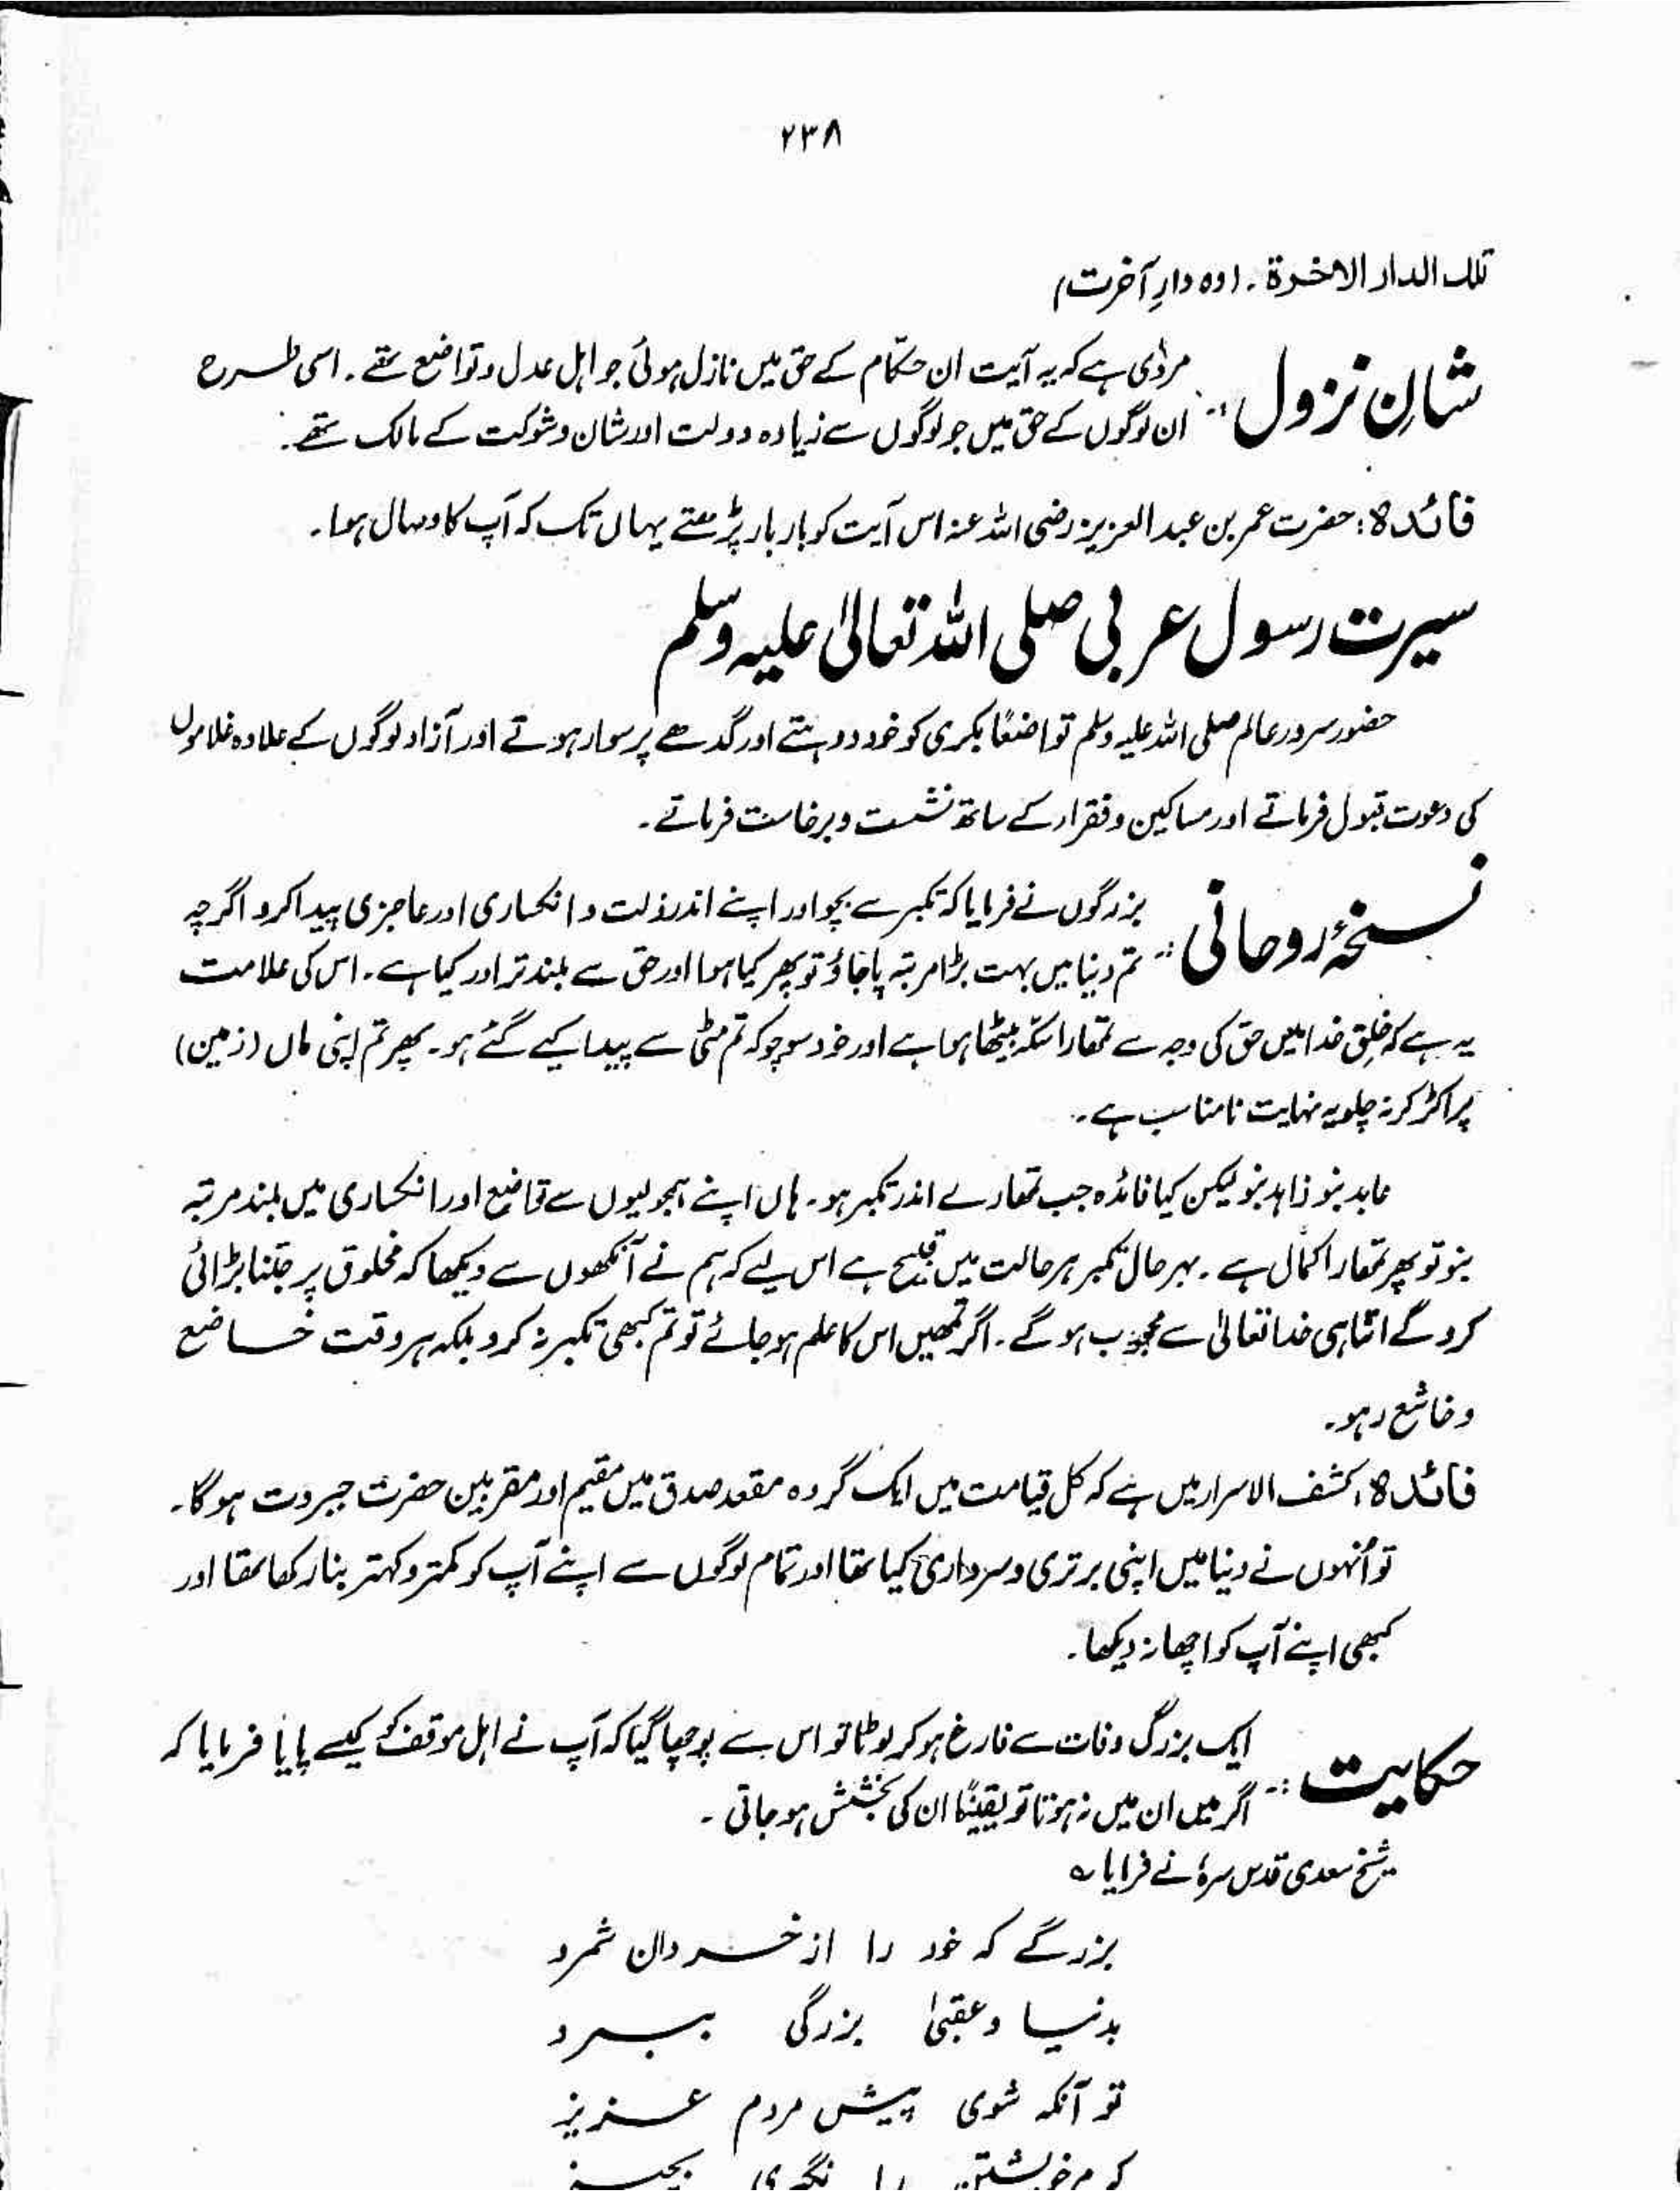 ۲۳۸
تلك الدار الاخرة ۔ (وہ دارِ آخرت)
شانِ نزول :- مروی ہے کہ یہ آیت ان حکّام کے حق میں نازل ہوئی جو اہل عدل و تواضع تھے ۔ اسی طرح
ان لوگوں کے حق میں جو لوگوں سے زیادہ دولت اور شان و شوکت کے مالک تھے ۔
فائدہ : حضرت عمر بن عبد العزیز رضی اللہ عنہ اس آیت کو بار بار پڑھتے یہاں تک کہ آپ کا وصال ہوا ۔
سیرت رسول عربی صلی اللہ تعالیٰ علیہ وسلم
حضور سرور عالم صلی اللہ علیہ وسلم تواضعًا بکری کو خود دوہتے اور گدھے پر سوار ہوتے اور آزاد لوگوں کے علاوہ غلاموں
کی دعوت قبول فرماتے اور مساکین و فقراء کے ساتھ نشست و برخاست فرماتے ۔
نسخۂ روحانی :- بزرگوں نے فرمایا کہ تکبر سے بچو اور اپنے اندر ذلت و انکساری اور عاجزی پیدا کرو اگرچہ
تم دنیا میں بہت بڑا مرتبہ پا جاؤ تو پھر کیا ہوا اور حق سے بلند تر اور کیا ہے ۔ اس کی علامت
یہ ہے کہ خلقِ خدا میں حق کی وجہ سے تمھارا سکّہ بیٹھا ہوا ہے اور خود سوچو کہ تم مٹی سے پیدا کیے گئے ہو ۔ پھر تم اپنی ماں (زمین)
پر اکڑ کر نہ چلو یہ نہایت نامناسب ہے ۔
عابد بنو زاہد بنو لیکن کیا فائدہ جب تمھارے اندر تکبر ہو ۔ ہاں اپنے ہمجولیوں سے تواضع اور انکساری میں بلند مرتبہ
بنو تو پھر تمھارا کمال ہے ۔ بہر حال تکبر ہر حالت میں قبیح ہے اس لیے کہ ہم نے آنکھوں سے دیکھا کہ مخلوق پر جتنا بڑائی
کرو گے اتنا ہی خدا تعالیٰ سے محجوب ہو گے ۔ اگر تمھیں اس کا علم ہو جائے تو تم کبھی تکبر نہ کرو بلکہ ہر وقت خاضع
و خاشع رہو ۔
فائدہ : کشف الاسرار میں ہے کہ کل قیامت میں ایک گروہ مقعد صدق میں مقیم اور مقربین حضرت جبروت ہو گا ۔
تو اُنہوں نے دنیا میں اپنی برتری و سرداری کیا تھا اور تمام لوگوں سے اپنے آپ کو کمتر و کہتر بنا رکھا تھا اور
کبھی اپنے آپ کو اچھا نہ دیکھا ۔
حکایت :- ایک بزرگ وفات سے فارغ ہو کر لوٹا تو اس سے پوچھا گیا کہ آپ نے اہل موقف کو کیسے پایا فرمایا کہ
اگر میں ان میں نہ ہوتا تو یقینًا ان کی بخشش ہو جاتی ۔
شیخ سعدی قدس سرہٗ نے فرمایا ؎
بزرگے کہ خود را از خردان شمرد
بدنیا و عقبیٰ بزرگی ببرد
تو آنگہ شوی پیش مردم عزیز
کہ مر خویشتن را نگیری بچیز